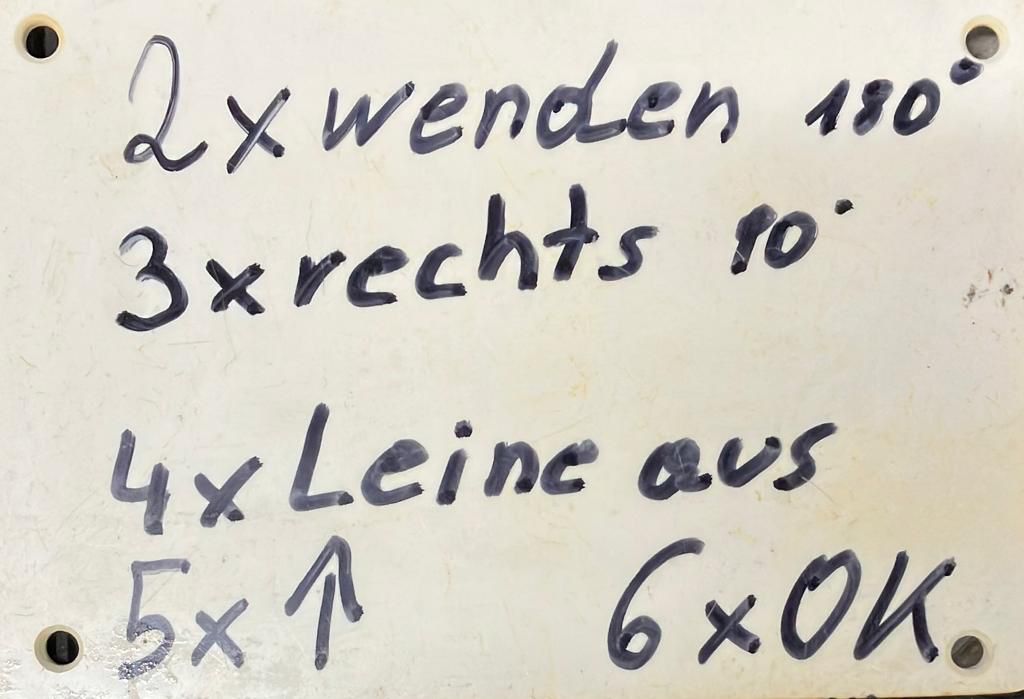 2x wenden 180°
3x rechts 90°
4x Leine aus
5x ↑ 6x OK